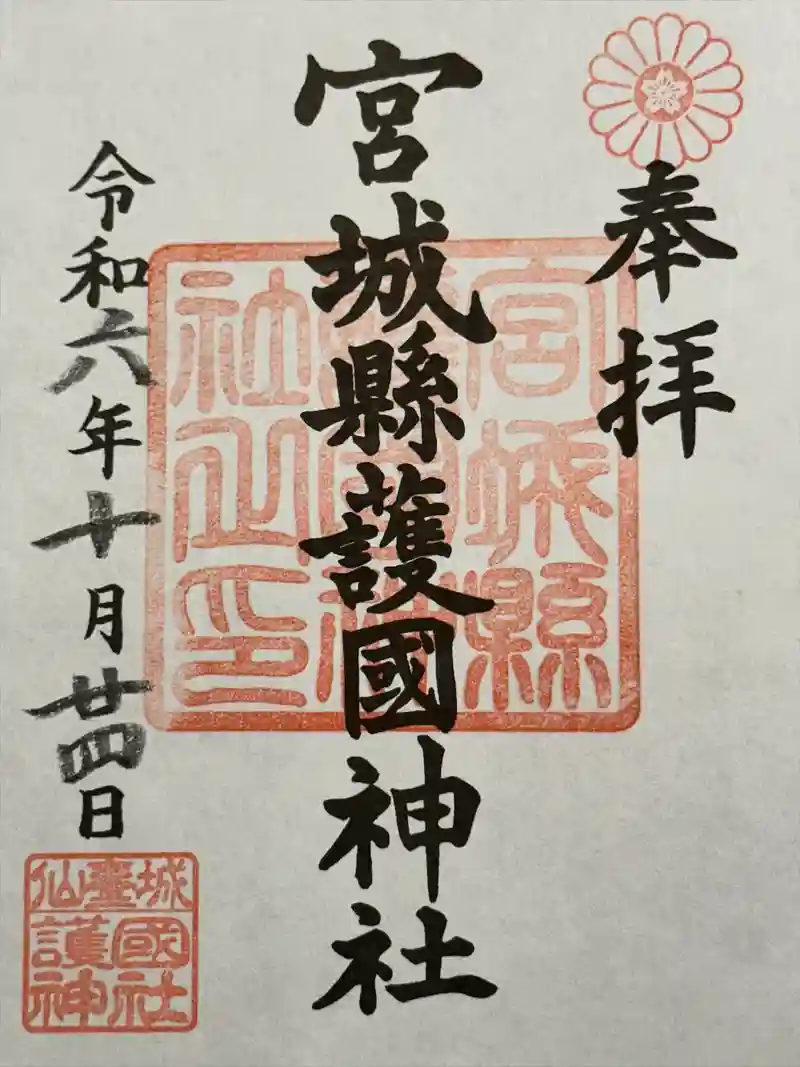 奉拝
宮城縣護國神社
宮城縣
護國神
社之印
令和六年十月廿四日
仙臺城
護國
神社